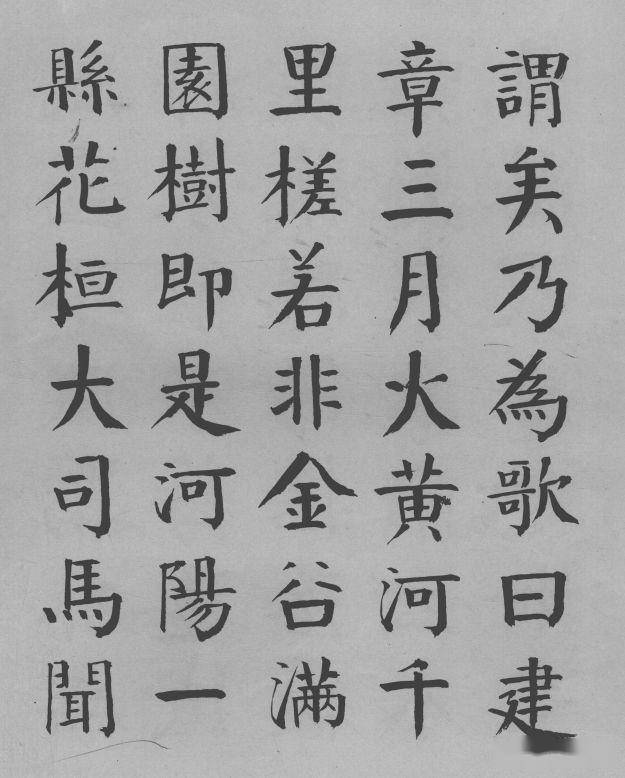 謂矣乃為歌曰建
章三月火黄河千
里槎若非金谷滿
園樹即是河陽一
縣花桓大司馬聞